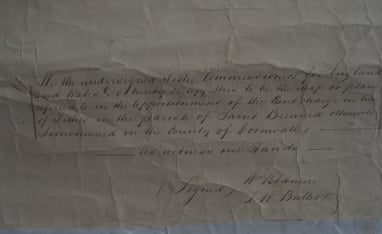 We the undersigned Tithe Commissioners for England
and Wales Do hereby certify this to be the Map or plan
referred to in the Apportionment of the Rent charge in lieu
of Tithes in the parish of Saint Breward otherwise
Simonward in the County of Cornwall
As witness our Hands
(Signed) Wm Blamire
T. W. Buller